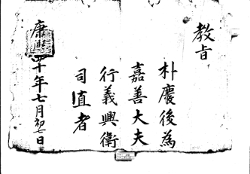 教旨
朴慶後為
嘉善大夫
行義興衛
司直者
康熙四十年七月初日